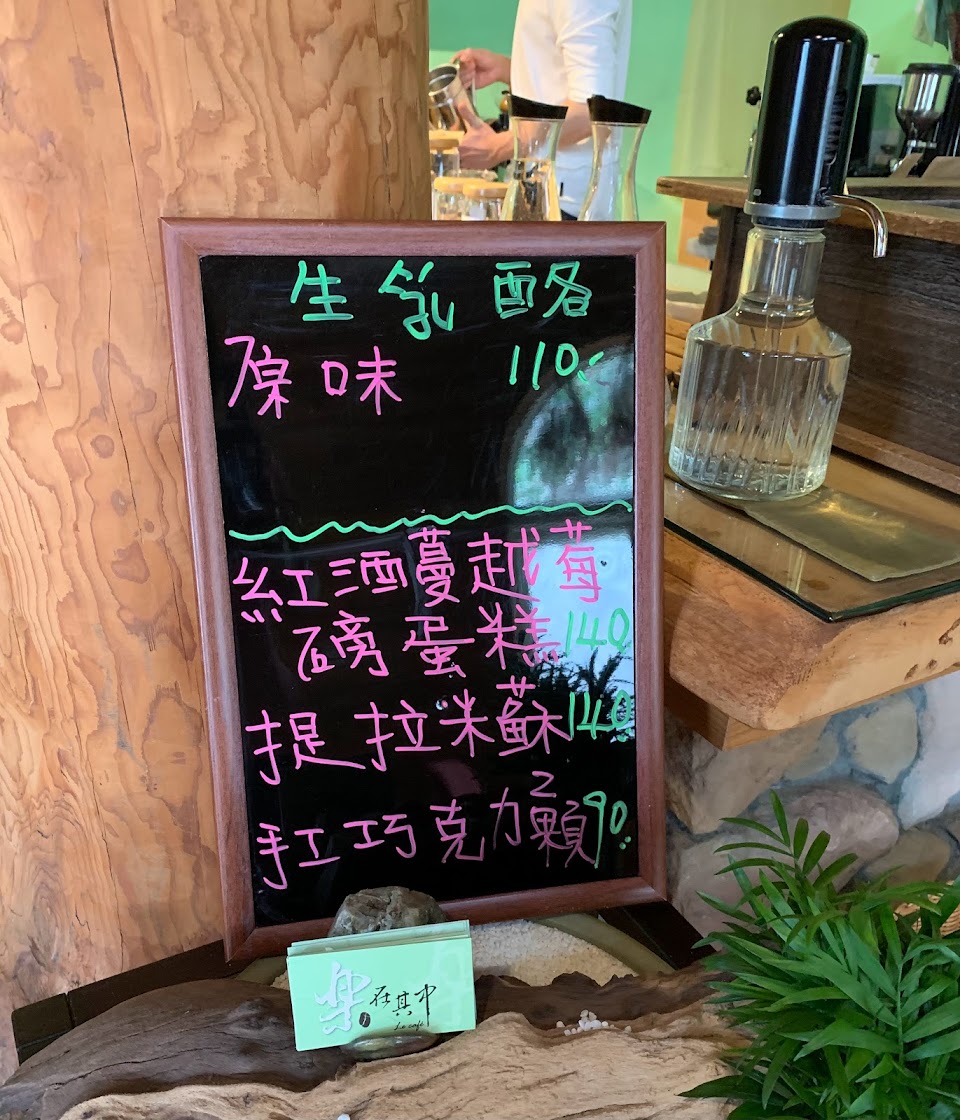 生乳酪
原味 110.-
紅酒蔓越莓
磅蛋糕 140
提拉米蘇 140
手工巧克力2顆 90.
樂在其中
Le café